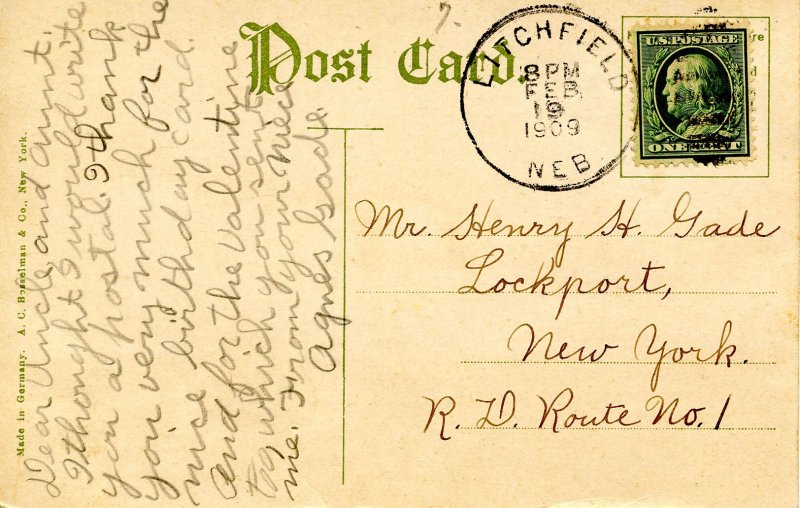 Post Card.
7.
LITCHFIELD
8 PM
FEB
19
1909
NEB
U.S. POSTAGE
ONE CENT
Mr. Henry H. Gade
Lockport,
New York.
R. D. Route No. 1
Dear Uncle and aunt.
I thought I would write
you a postal. I thank
you very much for the
nice birthday card.
and for the valentine
tag which you sent
me. From your niece
Agnes Gade
Made in Germany. A. C. Bosselman & Co., New York.